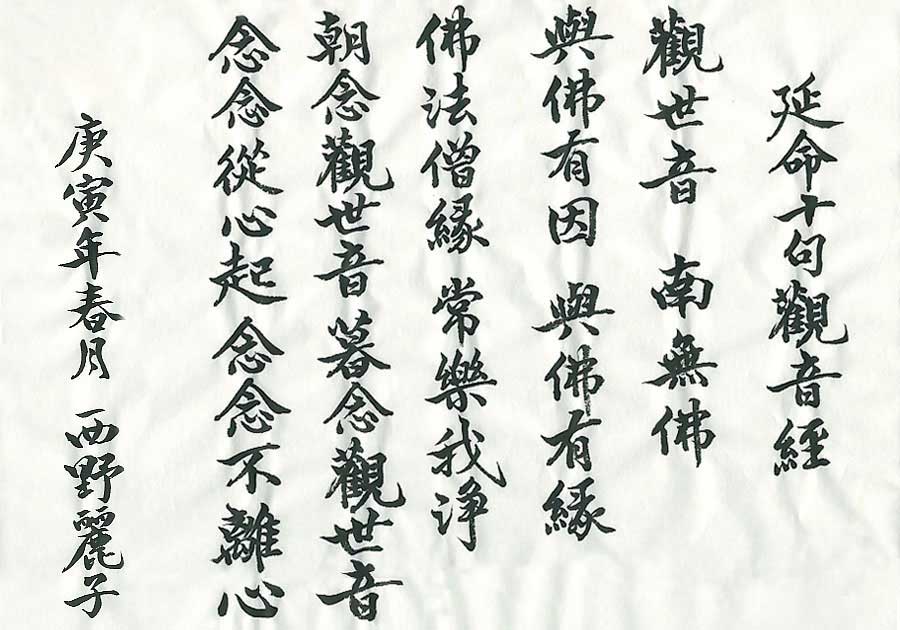 延命十句觀音經
觀世音 南無佛
與佛有因 與佛有緣
佛法僧緣 常樂我淨
朝念觀世音 暮念觀世音
念念從心起 念念不離心
庚寅年春月 西野麗子